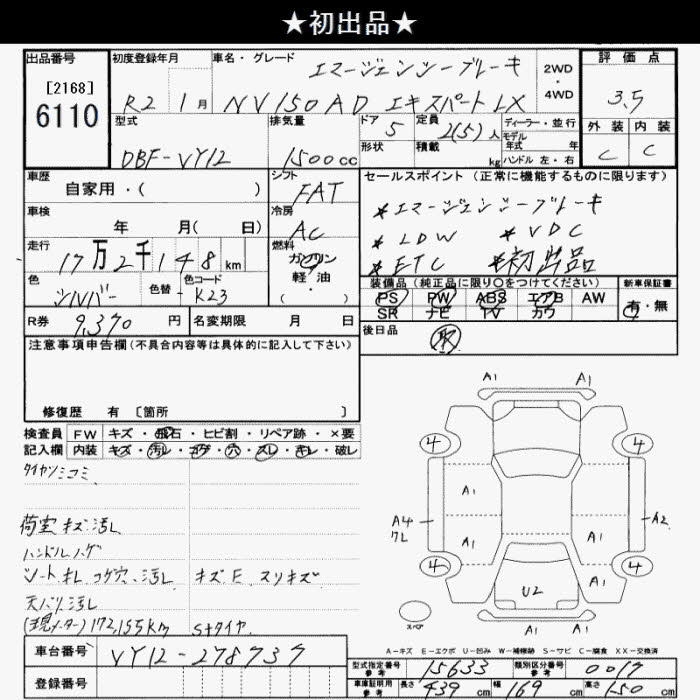 ★初出品★
出品番号 初度登録年月 車名・グレード エマージェンシーブレーキ 2WD・4WD 評価点
[2168] 6110 R2 1月 NV150AD エキスパートLX 3.5
型式 排気量 ドア 5 定員 2(5)人 ディーラー・並行 外装 内装
モデル年式 年
DBF-VY12 1500cc 形状 積載 kg ハンドル 左・右 C C
車歴 シフト セールスポイント(正常に機能するものに限ります)
自家用・( ) FAT *エマージェンシーブレーキ
車検 冷房 *LDW *VDC
年 月( 日) AC *ETC *初出品
走行 燃料
17万2千148km ガソリン
軽・油
( )
色 色替 色コード
シルバー K23
装備品(純正品に限り○をつけてください) 新車保証書
PS PW ABS エアB AW 有・無
SR ナビ TV カワ
R券 9,370円 名変期限 月 日
後日品 取
注意事項申告欄(不具合内容等は具体的に記入して下さい)
修復歴 有 [箇所 ]
検査員 FW キズ・飛石・ヒビ割・リペア跡・×要
記入欄 内装 キズ・汚レ・コゲ・穴・スレ・キレ・破レ
荷室キズ汚レ
ハンドルハゲ
シートキレ コゲ穴、汚レ キズE スリキズ
天バリ汚レ
(現メーター)172,155km Sタイヤ
A1 A1
4 4
A1
A4 A2
A1 A1
4 4
A1
U2
スペア
A1 A1
A-キズ E-エクボ U-凹み W-補修跡 S-サビ C-腐食 XX-交換済
車台番号 VY12-278737
型式指定番号 参考 15633 類別区分番号 参考 0017
登録番号
車庫証明用 参考 長さ 439cm 幅 169cm 高さ 150cm